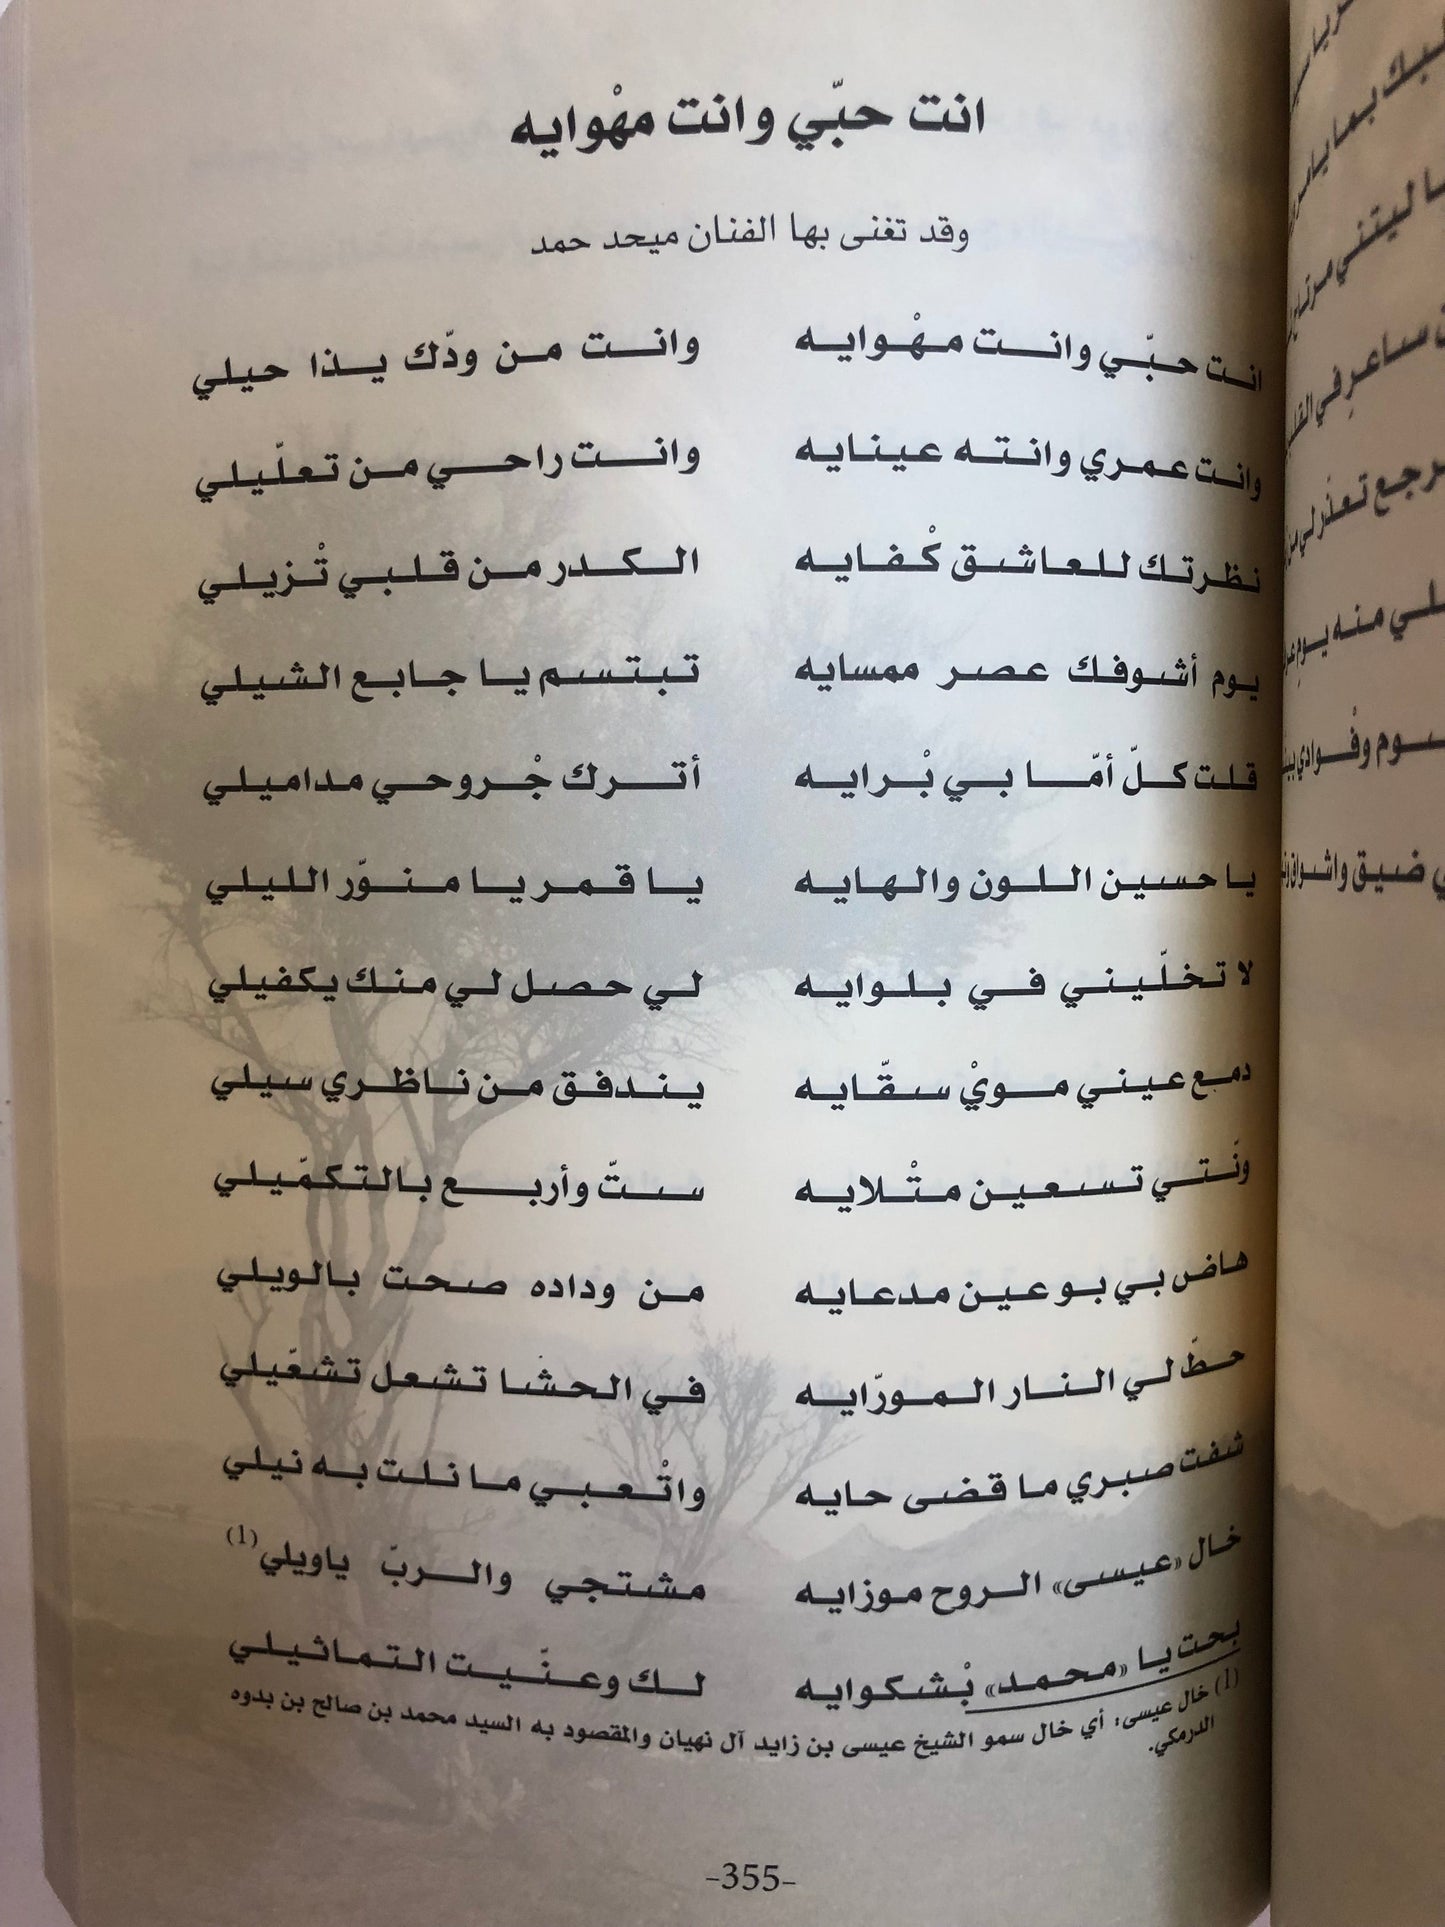 انت حبّي وانت مهْوايه
وقد تغنى بها الفنان ميحد حمد
انت حبّي وانت مهْوايه وانت من ودّك يذا حيلي
وانت عمري وانته عينايه وانت راحي من تعلّيلي
نظرتك للعاشق كْفايه الكدر من قلبي تْزيلي
يوم أشوفك عصر ممسايه تبتسم يا جابع الشيلي
قلت كلّ أمّا بي بْرايه أترك جْروحي مداميلي
يا حسين اللون والهايه يا قمر يا منوّر الليلي
لا تخلّيني في بلوايه لي حصل لي منك يكفيلي
دمع عيني مويْ سقّايه يندفق من ناظري سيلي
ونّتي تسعين متْلايه ستّ وأربع بالتكمّيلي
هاض بي بو عين مدعايه من وداده صحت بالويلي
حطّ لي النار المورّايه في الحشا تشعل تشعّيلي
شفت صبري ما قضى حايه واتْعبي ما نلت به نيلي
خال «عيسى» الروح موزايه مشتجي والربّ ياويلي(1)
بحت يا «محمد» بْشكوايه لك وعنّيت التماثيلي
(1) خال عيسى: أي خال سمو الشيخ عيسى بن زايد آل نهيان والمقصود به السيد محمد بن صالح بن بدوه
الدرمكي.
-355-